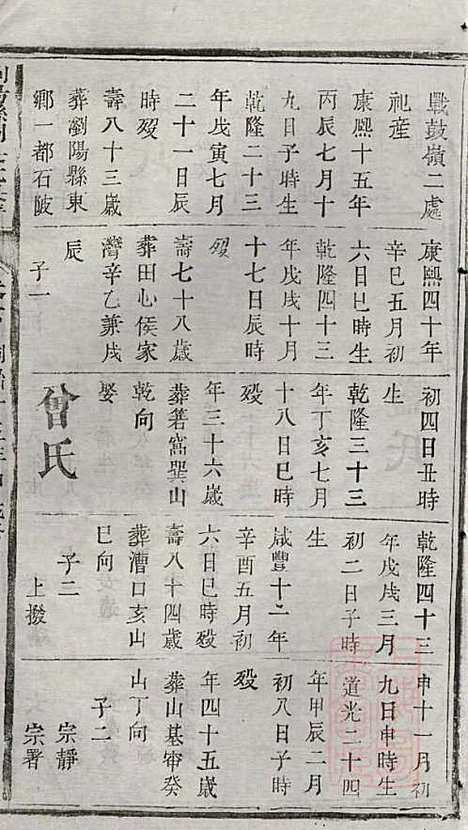 戰鼓嶺二處
祀產
康熙十五年
丙辰七月十
九日子時生
乾隆二十三
年戊寅七月
二十一日辰
時歿
壽八十三歲
葬瀏陽縣東
鄉一都石陂
康熙四十年
辛巳五月初
六日巳時生
乾隆四十三
年戊戌十月
十七日辰時
歿
壽七十八歲
葬田心侯家
灣辛乙兼戌
辰
子一
初四日丑時
生
乾隆三十三
年丁亥七月
十八日巳時
歿
年三十六歲
葬箬窩巽山
乾向
娶
曾氏
乾隆四十三
年戊戌三月
初二日子時
生
咸豐十二年
辛酉五月初
六日巳時歿
壽八十四歲
葬漕口亥山
巳向
子二
上撥
申十一月初
九日申時生
道光二十四
年甲辰二月
初八日子時
歿
年四十五歲
葬山基窰癸
山丁向
子二
宗靜
宗署